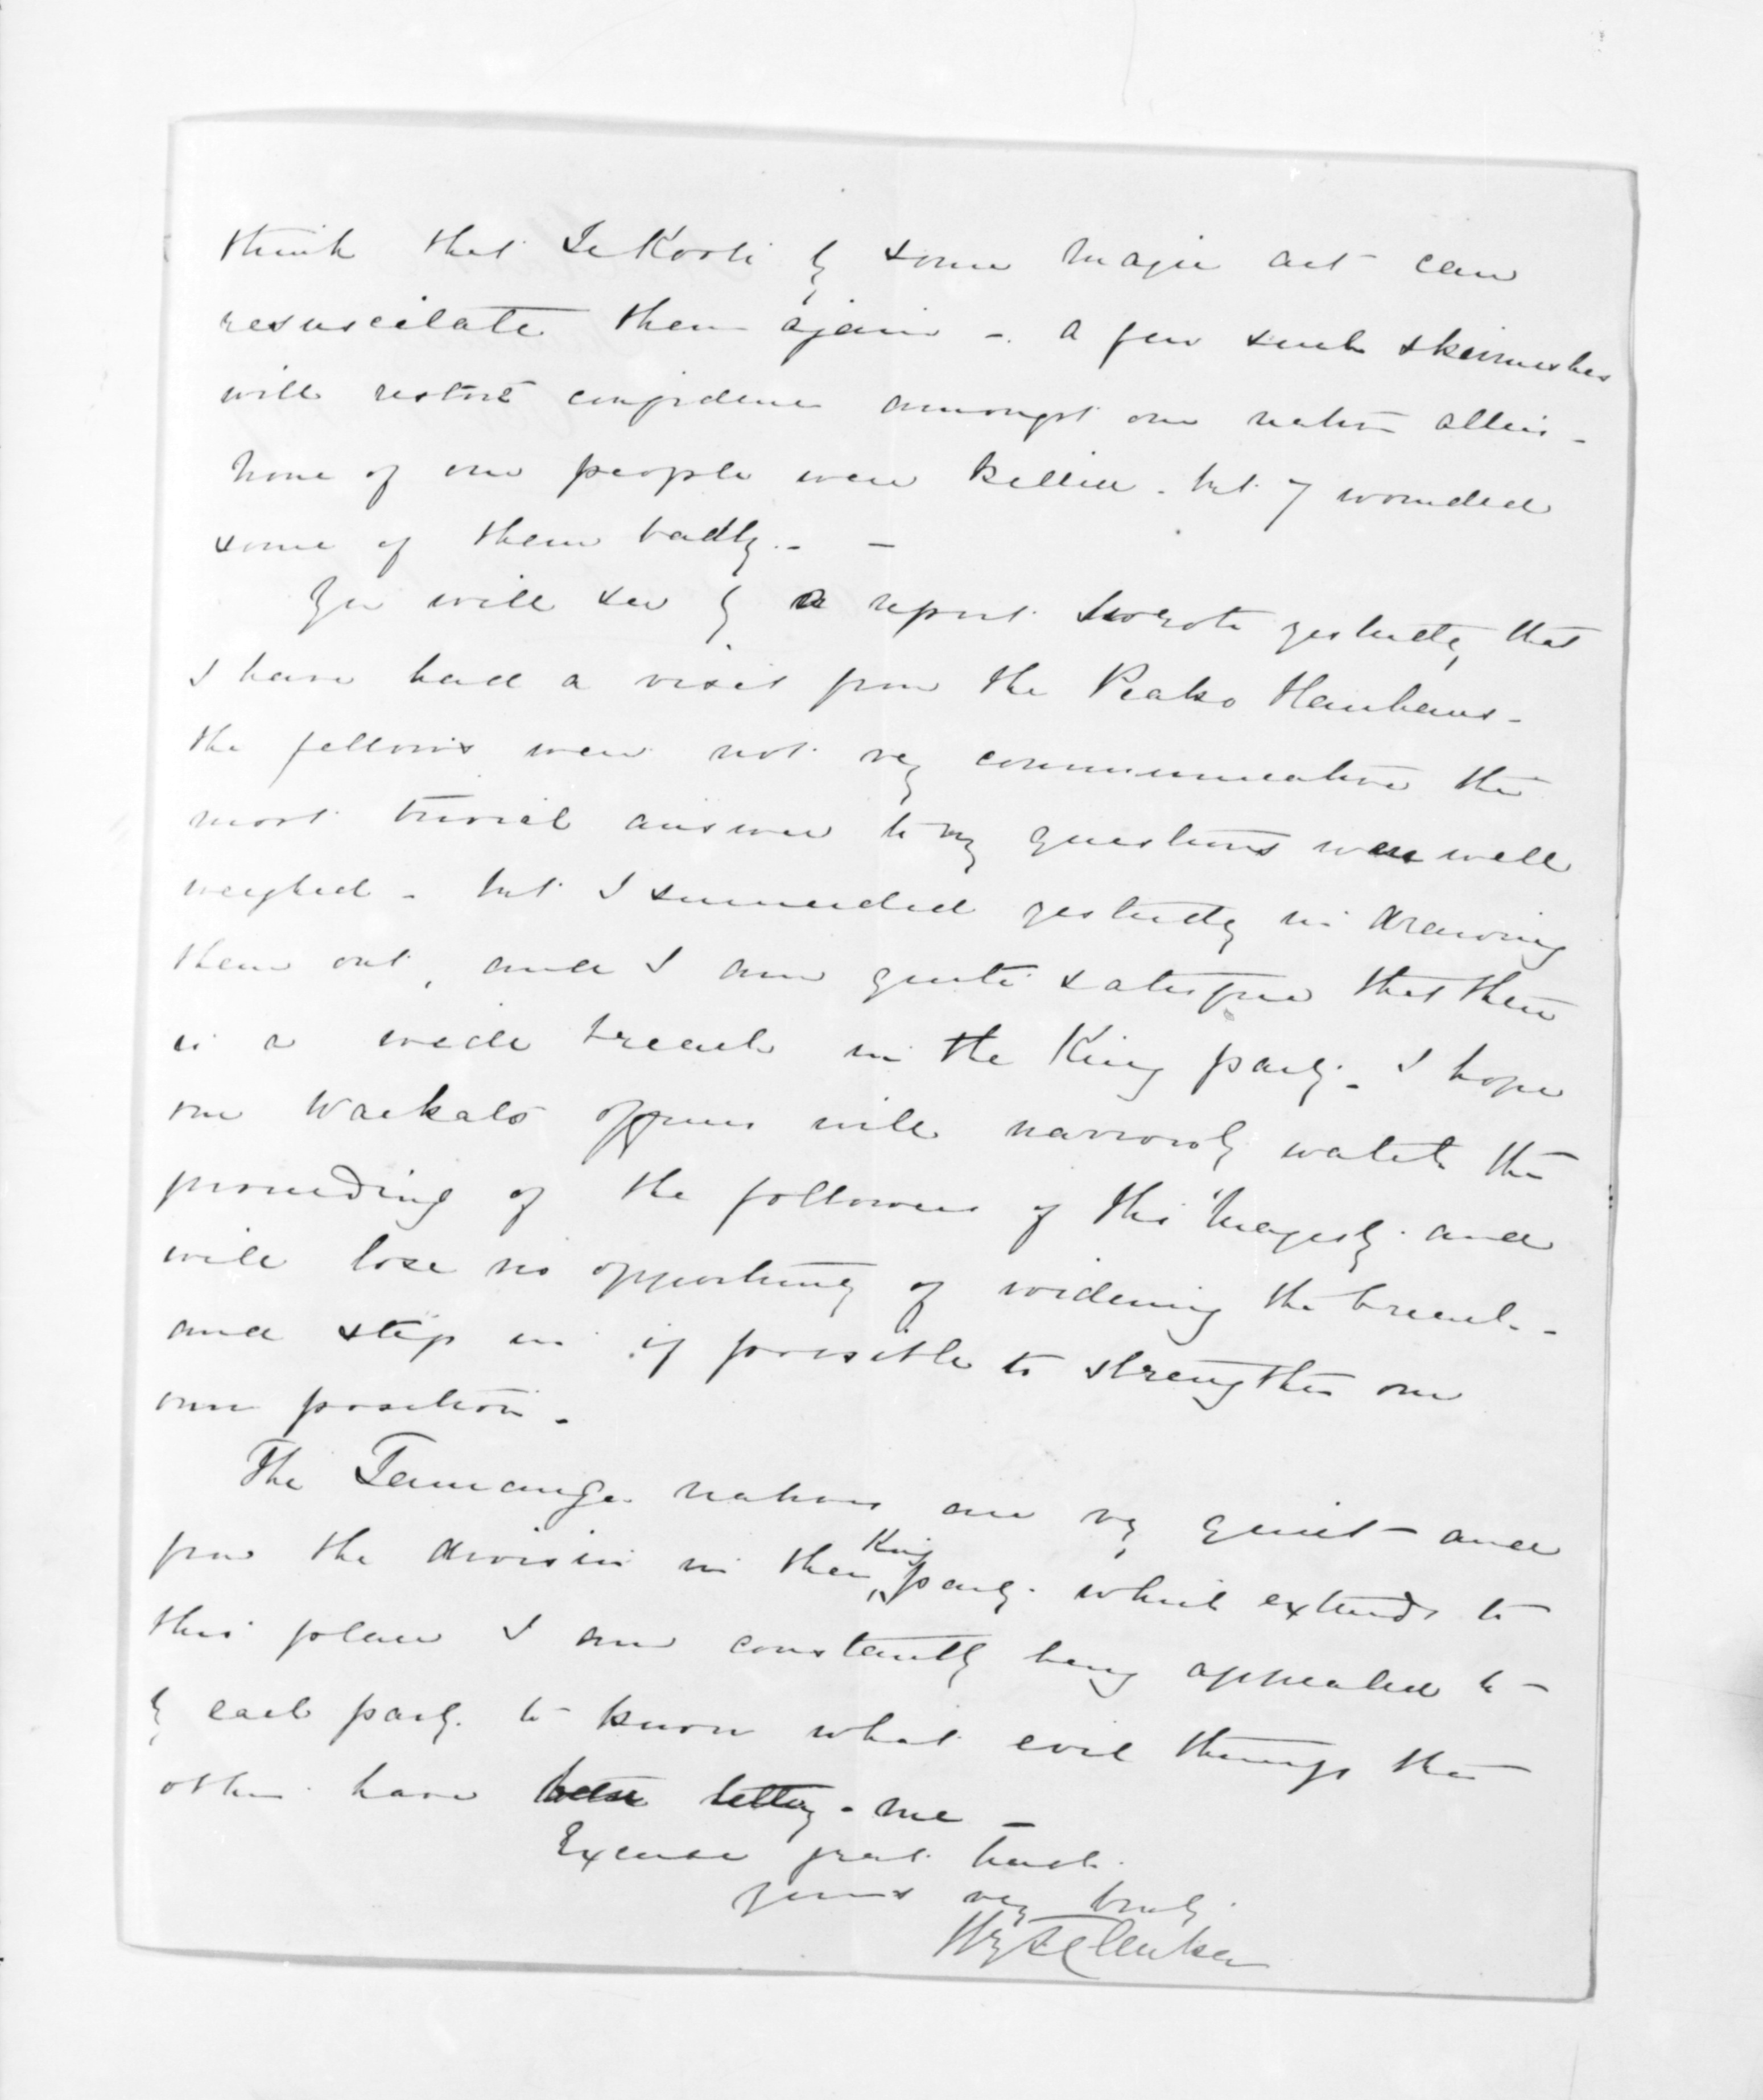 think that Te Kooti by some magic art can
resuscitate them again -. a few such skirmishes
will restore confidence amongst our native allies -
None of our people were killed. but 7 wounded
some of them badly. - -
You will see by a report I wrote yesterday that
I have had a visit from the Piako Hauhaus -
the fellows were not very communicative the
most trivial answer to my questions were well
weighed - but I succeeded yesterday in drawing
them out, and I am quite satisfied that there
is a wide breach in the King party. - I hope
our Waikato officers will narrowly watch the
proceeding of the followers of His Majesty. and
will lose no opportunity of widening the breach. -
and step in if possible to strengthen our
own position. -
The Tauranga natives are very quiet and
from the division in their King party. which extends to
this place I am constantly being appealed to -
by each party. to know what evil things the
other have telling me -
Excuse great haste.
Yours very truly.
Hy T Clarke